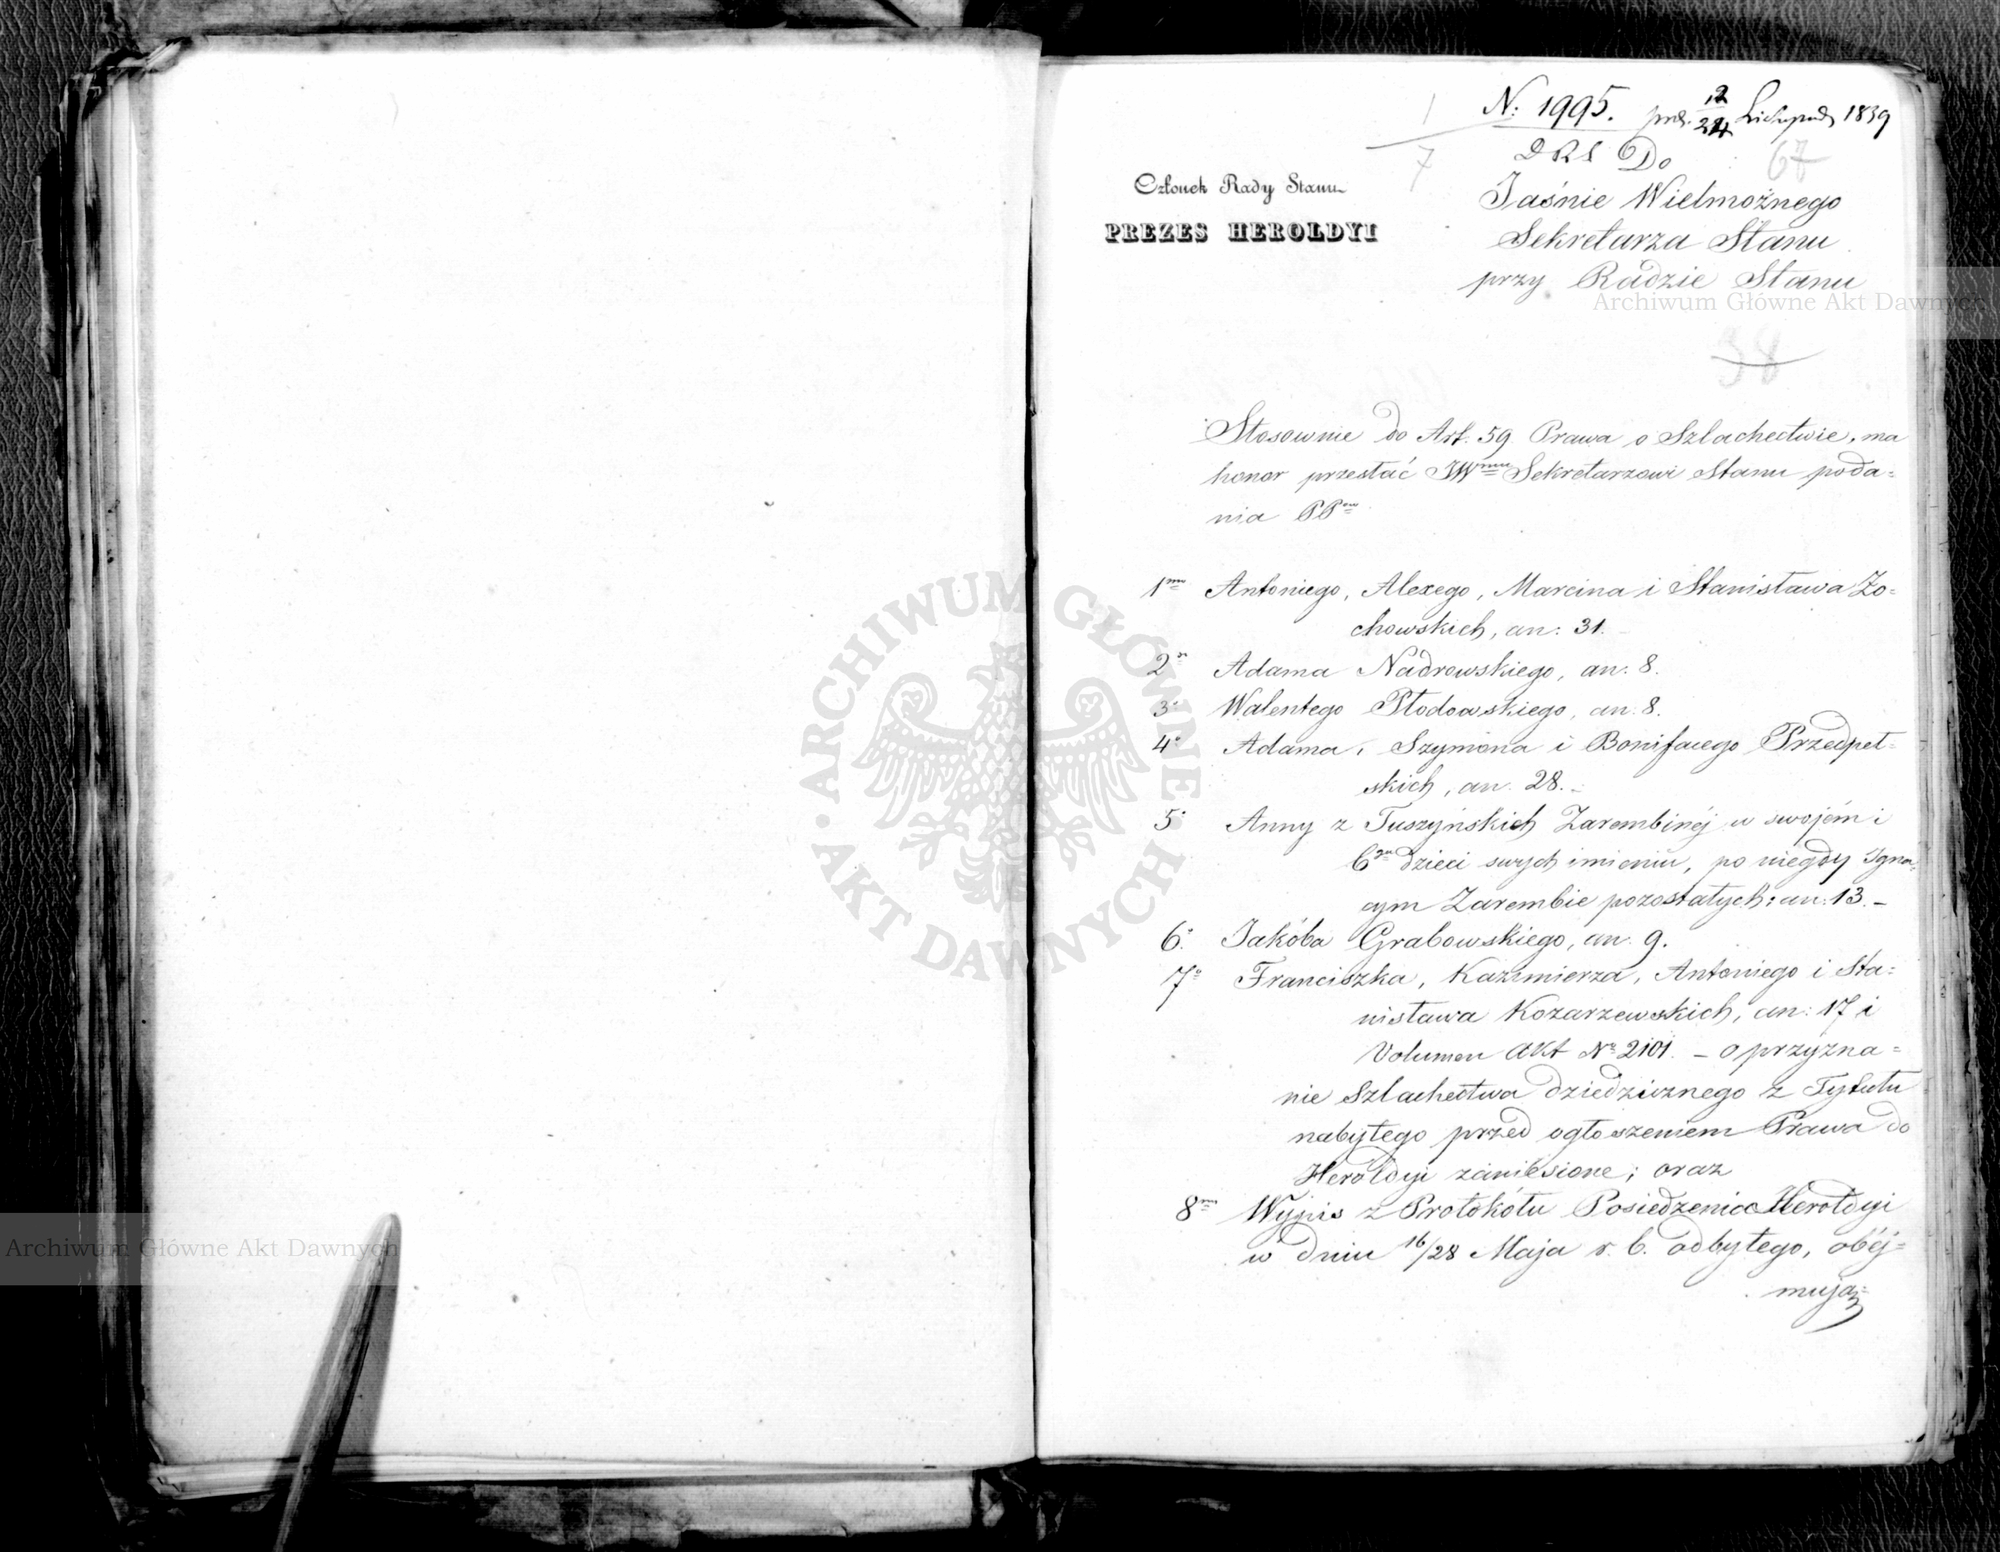 N: 1995. prds. 12/24 Listopada 1839
1/7
D R S Do
67
Członek Rady Stanu
PREZES HEROLDYI
Jaśnie Wielmożnego
Sekretarza Stanu
przy Radzie Stanu
Archiwum Główne Akt Dawnych
38
Stosownie do Art. 59 Prawa o Szlachectwie, ma
honor przesłać JWmu Sekretarzowi Stanu poda=
nia PPow
1mo Antoniego, Alexego, Marcina i Stanisława Żo=
chowskich, an: 31.
2o Adama Nadrowskiego, an: 8.
3o Walentego Płodowskiego, an: 8.
4o Adama, Szymona i Bonifacego Przedpeł=
skich, an: 28. -
5o Anny z Tuszyńskich Zarembinéj w swojém i
6ga dzieci swych imieniu, po niegdy Igna=
cym Zarembie pozostałych: an: 13. -
6o Jakóba Grabowskiego, an: 9.
7o Franciszka, Kazimierza, Antoniego i Sta=
nisława Kozarzewskich, an: 17 i
Volumen Akt No 2101. - o przyzna=
nie Szlachectwa dziedzicznego z Tytułu
nabytego przed ogłoszeniem Prawa do
Heroldyi zaniesione; oraz
8mo Wypis z Protokółu Posiedzenia Heroldyi
w dniu 16/28 Maja r. b. odbytego, obéj=
mują=
ARCHIWUM GŁÓWNE AKT DAWNYCH
Archiwum Główne Akt Dawnych